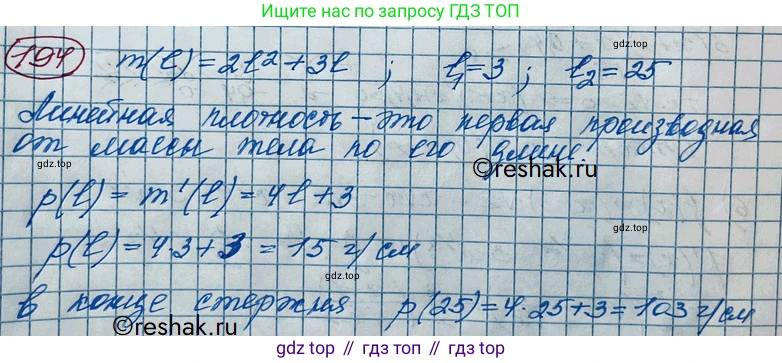 Ищите нас по запросу ГДЗ ТОП
194 m(l) = 2l² + 3l ; l₁ = 3 ; l₂ = 25
gdz top
Линейная плотность – это первая производная
от массы тела по его длине.
gdz top
©reshak.ru
p(l) = m'(l) = 4l + 3
p(l) = 4·3 + 3 = 15 г/см
gdz.top
в конце стержня p(25) = 4·25 + 3 = 103 г/см
©reshak.ru
gdz top // гдз топ // gdz top